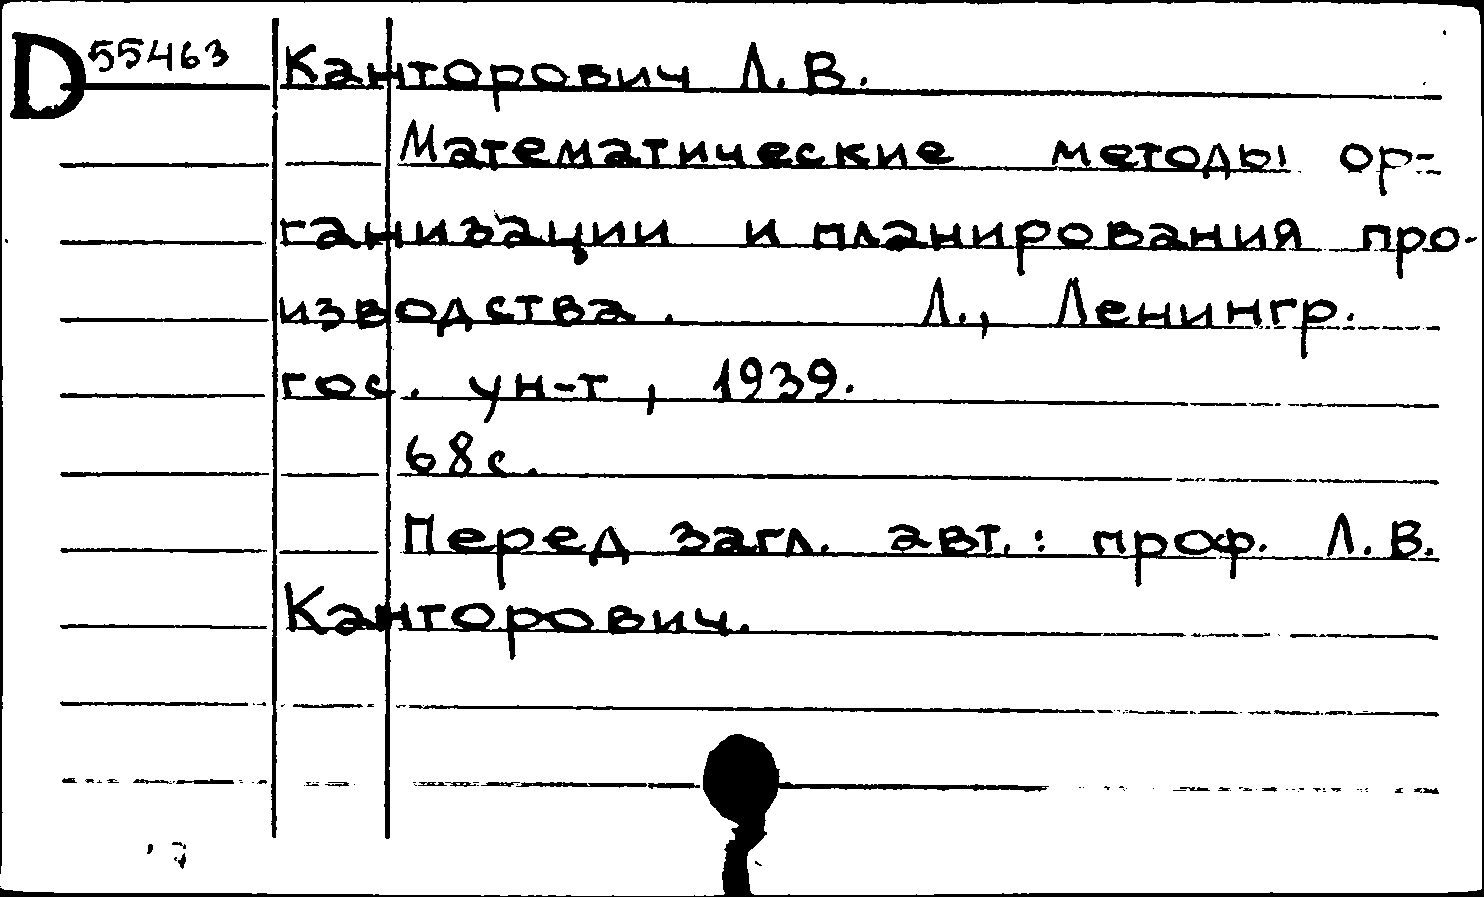 D 55463 Канторович Л. В.
Математические методы ор-
ганизации и планирования про-
изводства. Л., Ленингр.
гос. ун-т, 1939.
68 с.
Перед загл. авт.: проф. Л. В.
Канторович.